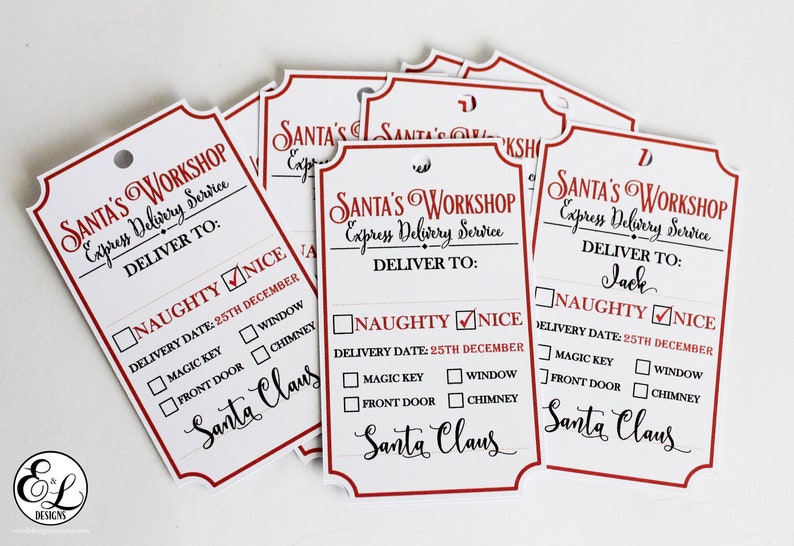 SANTA'S WORKSHOP
Express Delivery Service
DELIVER TO:
NAUGHTY NICE
DELIVERY DATE: 25TH DECEMBER
MAGIC KEY WINDOW
FRONT DOOR CHIMNEY
Santa Claus
SANTA'S
SANTA'S WORKSHOP
SANTA'S WORKSHOP
Express Delivery Service
DELIVER TO:
NAUGHTY NICE
DELIVERY DATE: 25TH DECEMBER
MAGIC KEY WINDOW
FRONT DOOR CHIMNEY
Santa Claus
SANTA'S WORKSHOP
Express Delivery Service
DELIVER TO:
Jack
NAUGHTY NICE
DELIVERY DATE: 25TH DECEMBER
MAGIC KEY WINDOW
FRONT DOOR CHIMNEY
Santa Claus
E&L
DESIGNS